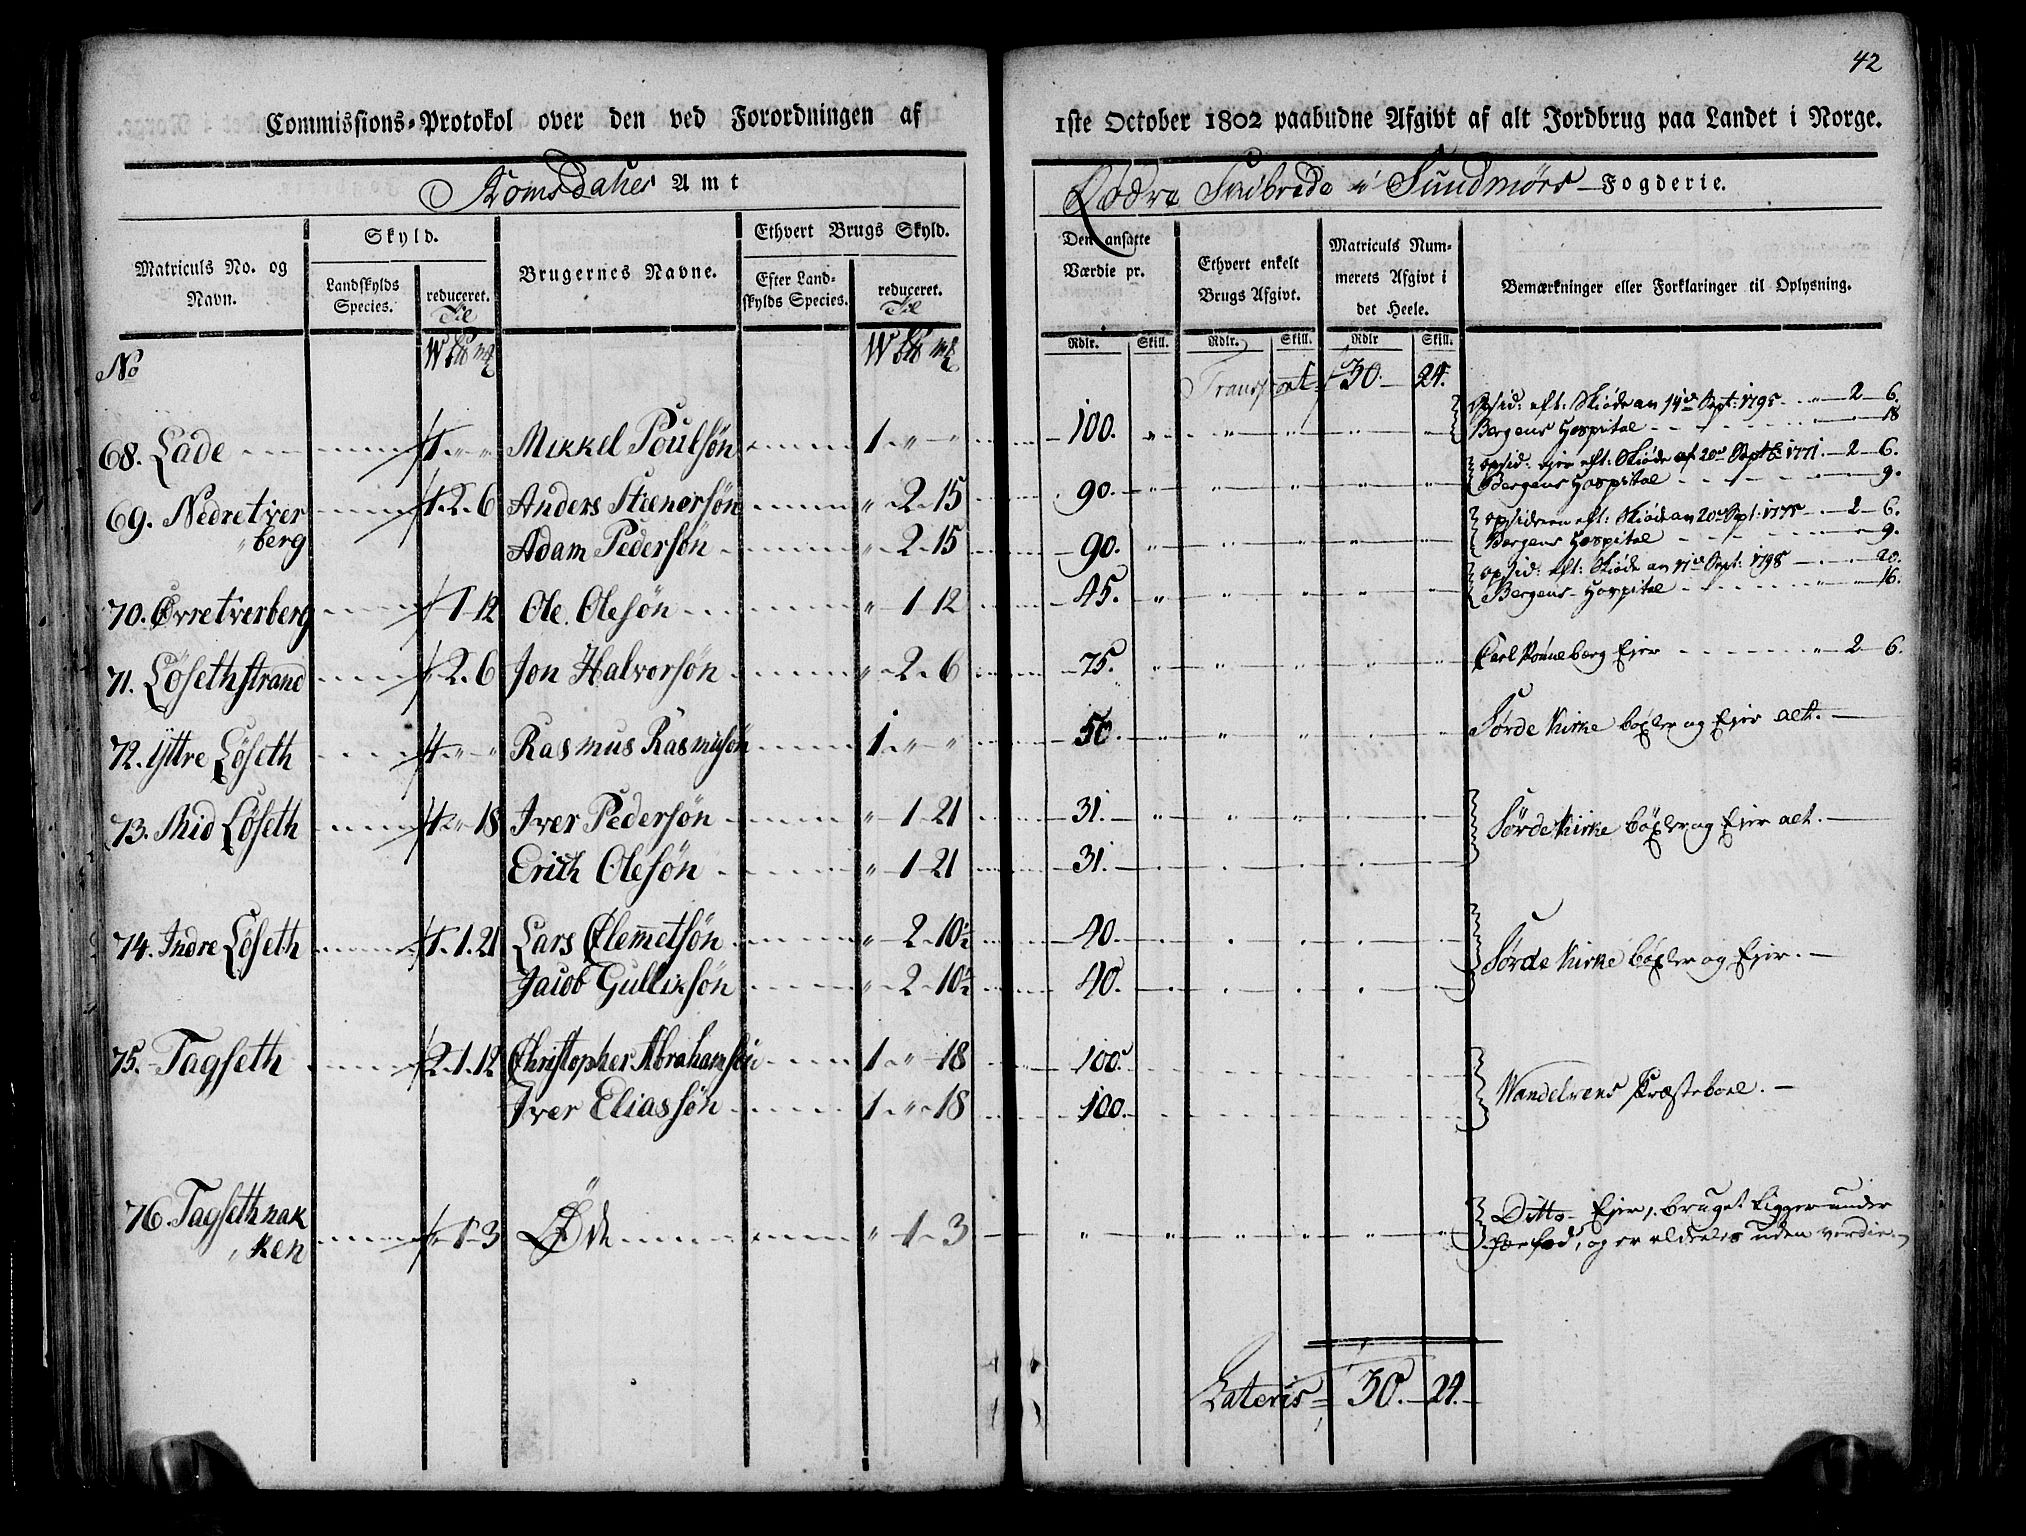 42
Commissions-Protokol over den ved Forordningen af 1ste October 1802 paabudne Afgivt af alt Jordbrug paa Landet i Norge.
Romsdahls Amt
Skibrede i Sundmörs Fogderie.
Matriculs No. og Navn.
Skyld.
Landskylds Species.
reduceret. Til
Brugernes Navne.
Ethvert Brugs Skyld.
Efter Landskylds Species.
reduceret. Til
Den ansatte Værdie pr.
Ethvert enkelt Brugs Afgivt.
Matriculs Nummerets Afgivt i det Heele.
Bemærkninger eller Forklaringer til Oplysning.
Rdlr. Skill. Rdlr. Skill. Rdlr Skill.
No
Transport 30. 24.
68. Lade 1 " " Mikkel Poulsön 1 " " 100. Opsid: eft: Skiöde an 14de Sept: 1795 2 6.
Bergens Hospital 18
69. Nedretverberg 1 2 6 Anders Steenersön " 2 15 90. opsid: ejer eft: Skiöde af 20de Septbr 1771. 2 6.
Bergens Hospital 9.
Adam Pedersön " 2 15 90. opsideren eft: Skiöde an 20de Sept: 1775 2 6.
Bergens Hospital 9.
70. Övretverberg " 1 12 Ole Olesön " 1 12 45. opsid: eft: Skiöde an 17de Sept: 1798 20.
Bergens Hospital 16.
71. Lösethstrand " 2 6 Jon Halvorsön " 2 6 75. Carl Rönneberg Ejer 2 6.
72. Ÿttre Löseth 1 " " Rasmus Rasmusön 1 " " 50. Sörde Kirke böxler og Ejer alt.
73. Mid Löseth 1 " 18 Iver Pedersön " 1 21 31. Sörde Kirke böxler og Ejer alt.
Erich Olesön " 1 21 31.
74. Indre Löseth 1 1 21 Lars Clemmetsön " 2 10½ 40. Sörde Kirke böxler og Ejer.
Jacob Gulliksön " 2 10½ 40.
75. Tagseth 2 1 12 Christopher Abrahamsön 1 " 18 100. Wandelvens Præsteboel.
Iver Eliassön 1 " 18 100.
76. Tagsethnakken " 1 3 Öde " 1 3 Ditto Ejer, bruget ligger under
og er aldeeles uden verdie.
Lateris 30. 24.